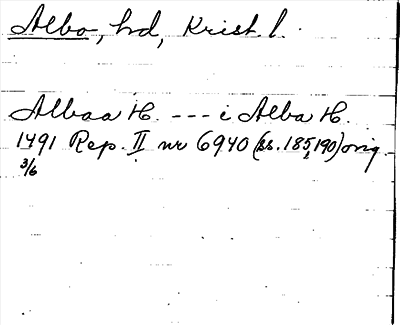 Albo, hd, Krist. l.
Albaa H. --- i Alba H.
1491 Rep. II nr 6940 (ss. 185, 190) orig.
3/6